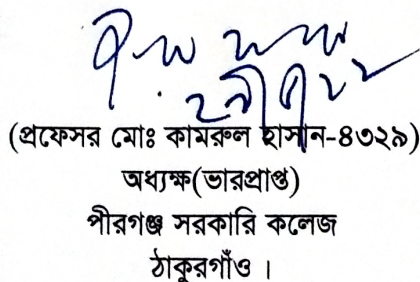 (প্রফেসর মোঃ কামরুল হাসান-৪৩২৯)
অধ্যক্ষ(ভারপ্রাপ্ত)
পীরগঞ্জ সরকারি কলেজ
ঠাকুরগাঁও ।